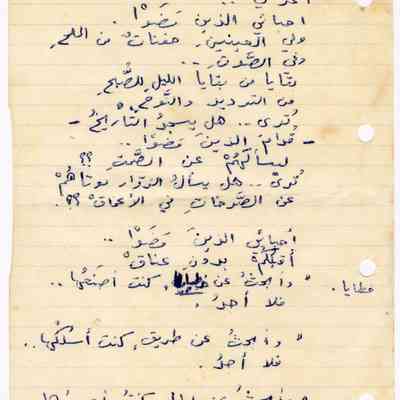 أحبائي الذين مَضَوْا .
وفي العينينِ حفناتٌ من الملحِ
وفي الصَّوت ..
بقايا من بقايا الليلِ للصُّبحِ
من الترديد والنَّوحِ
تُرى .. هل يسجدُ التاريخُ –
– قُدامَ الذينَ مَضَوْا ..
ليسألَهُمْ عن الصَّمتِ ؟؟
تُرى .. هل يسألُ الزوّار موتاهُمْ
عن الصَّرخاتِ في الأعماقْ ؟؟.
أحبائي الذينَ مَضَوْا ..
أُقبّلُكُمْ بدونِ عناقْ
" وأبحثُ عن خطايا، كنت أصنعُها ..
خطايا .
فلا أجدُ .
" وأبحثُ عن طريقٍ، كنت أسلكُها ..
فلا أجدُ .